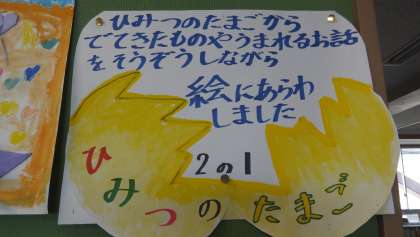 ひみつのたまごから
でてきたものやうまれるお話
をそうぞうしながら
絵にあらわ
しました
2の1
ひみつのたまご